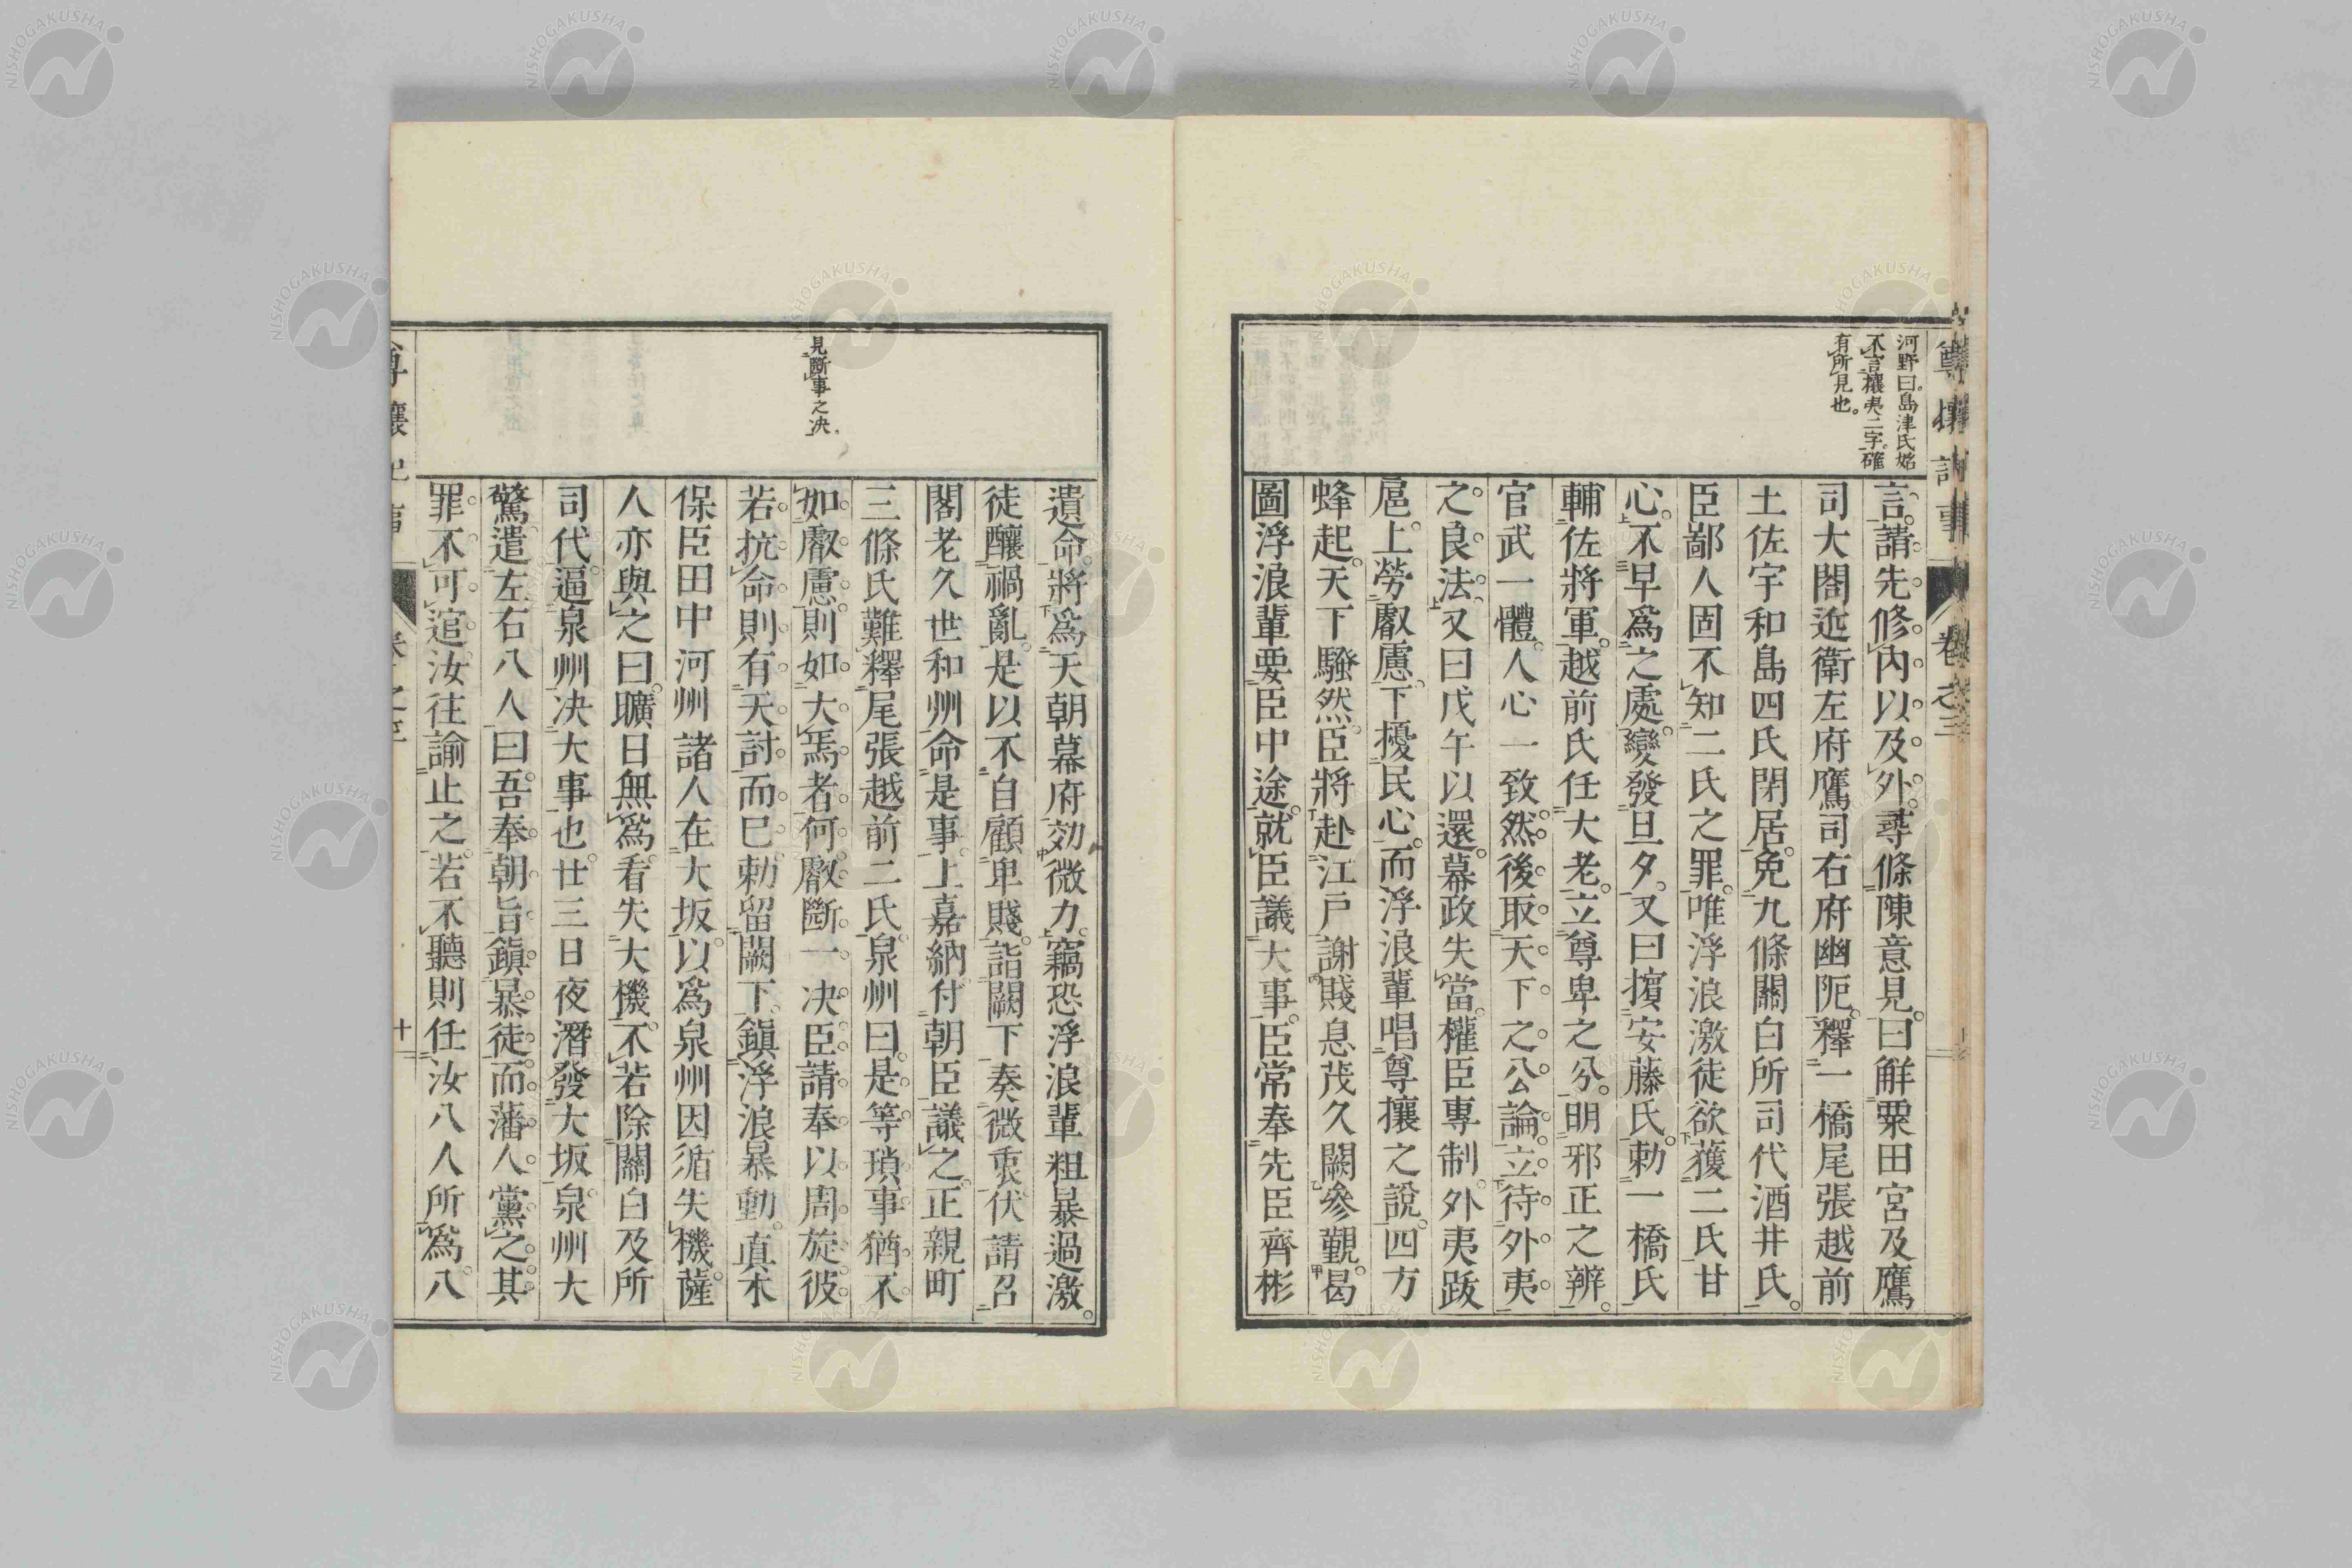 尊攘記事
卷之三
河野曰。島津氏始
不言攘夷二字。確
有所見也。
言。請先修內以及外。尋條陳意見。曰觧粟田宮及鷹
司大閤近衛左府鷹司右府幽阨。釋一橋尾張越前
土佐宇和島四氏閉居。免九條關白所司代酒井氏。
臣鄙人固不知二氏之罪。唯浮浪激徒欲獲二氏甘
心。不早爲之處。變發旦夕。又曰擯安藤氏。勅一橋氏
輔佐將軍。越前氏任大老。立尊卑之分。明邪正之辨。
官武一體。人心一致。然後取天下之公論。立待外夷
之良法。又曰戊午以還。幕政失當。權臣專制。外夷跋
扈。上勞叡慮。下擾民心。而浮浪輩唱尊攘之說。四方
蜂起。天下騷然。臣將赴江戶謝賤息茂久闕參覲。曷
圖浮浪輩要臣中途。就臣議大事。臣常奉先臣齊彬
遺命。將爲天朝幕府効微力。竊恐浮浪輩粗暴過激。
徒釀禍亂。是以不自顧卑賤。詣闕下奏微衷。伏請召
閣老久世和州。命是事。上嘉納。付朝臣議之。正親町
三條氏難釋尾張越前二氏。泉州曰。是等瑣事。猶不
如叡慮。則如大焉者何。叡斷一决。臣請奉以周旋。彼
若抗命則有天討而已。勅留闕下。鎭浮浪暴動。眞木
保臣田中河州諸人在大坂。以爲泉州因循失機。薩
人亦與之曰。曠日無爲。看失大機。不若除關白及所
司代。逼泉州决大事也。廿三日夜潛發大坂。泉州大
驚。遣左右八人曰。吾奉朝旨鎭暴徒。而藩人黨之。其
罪不可逭。汝往諭止之。若不聽則任汝八人所爲。八
見斷事之决。
尊攘記事
卷之三
十